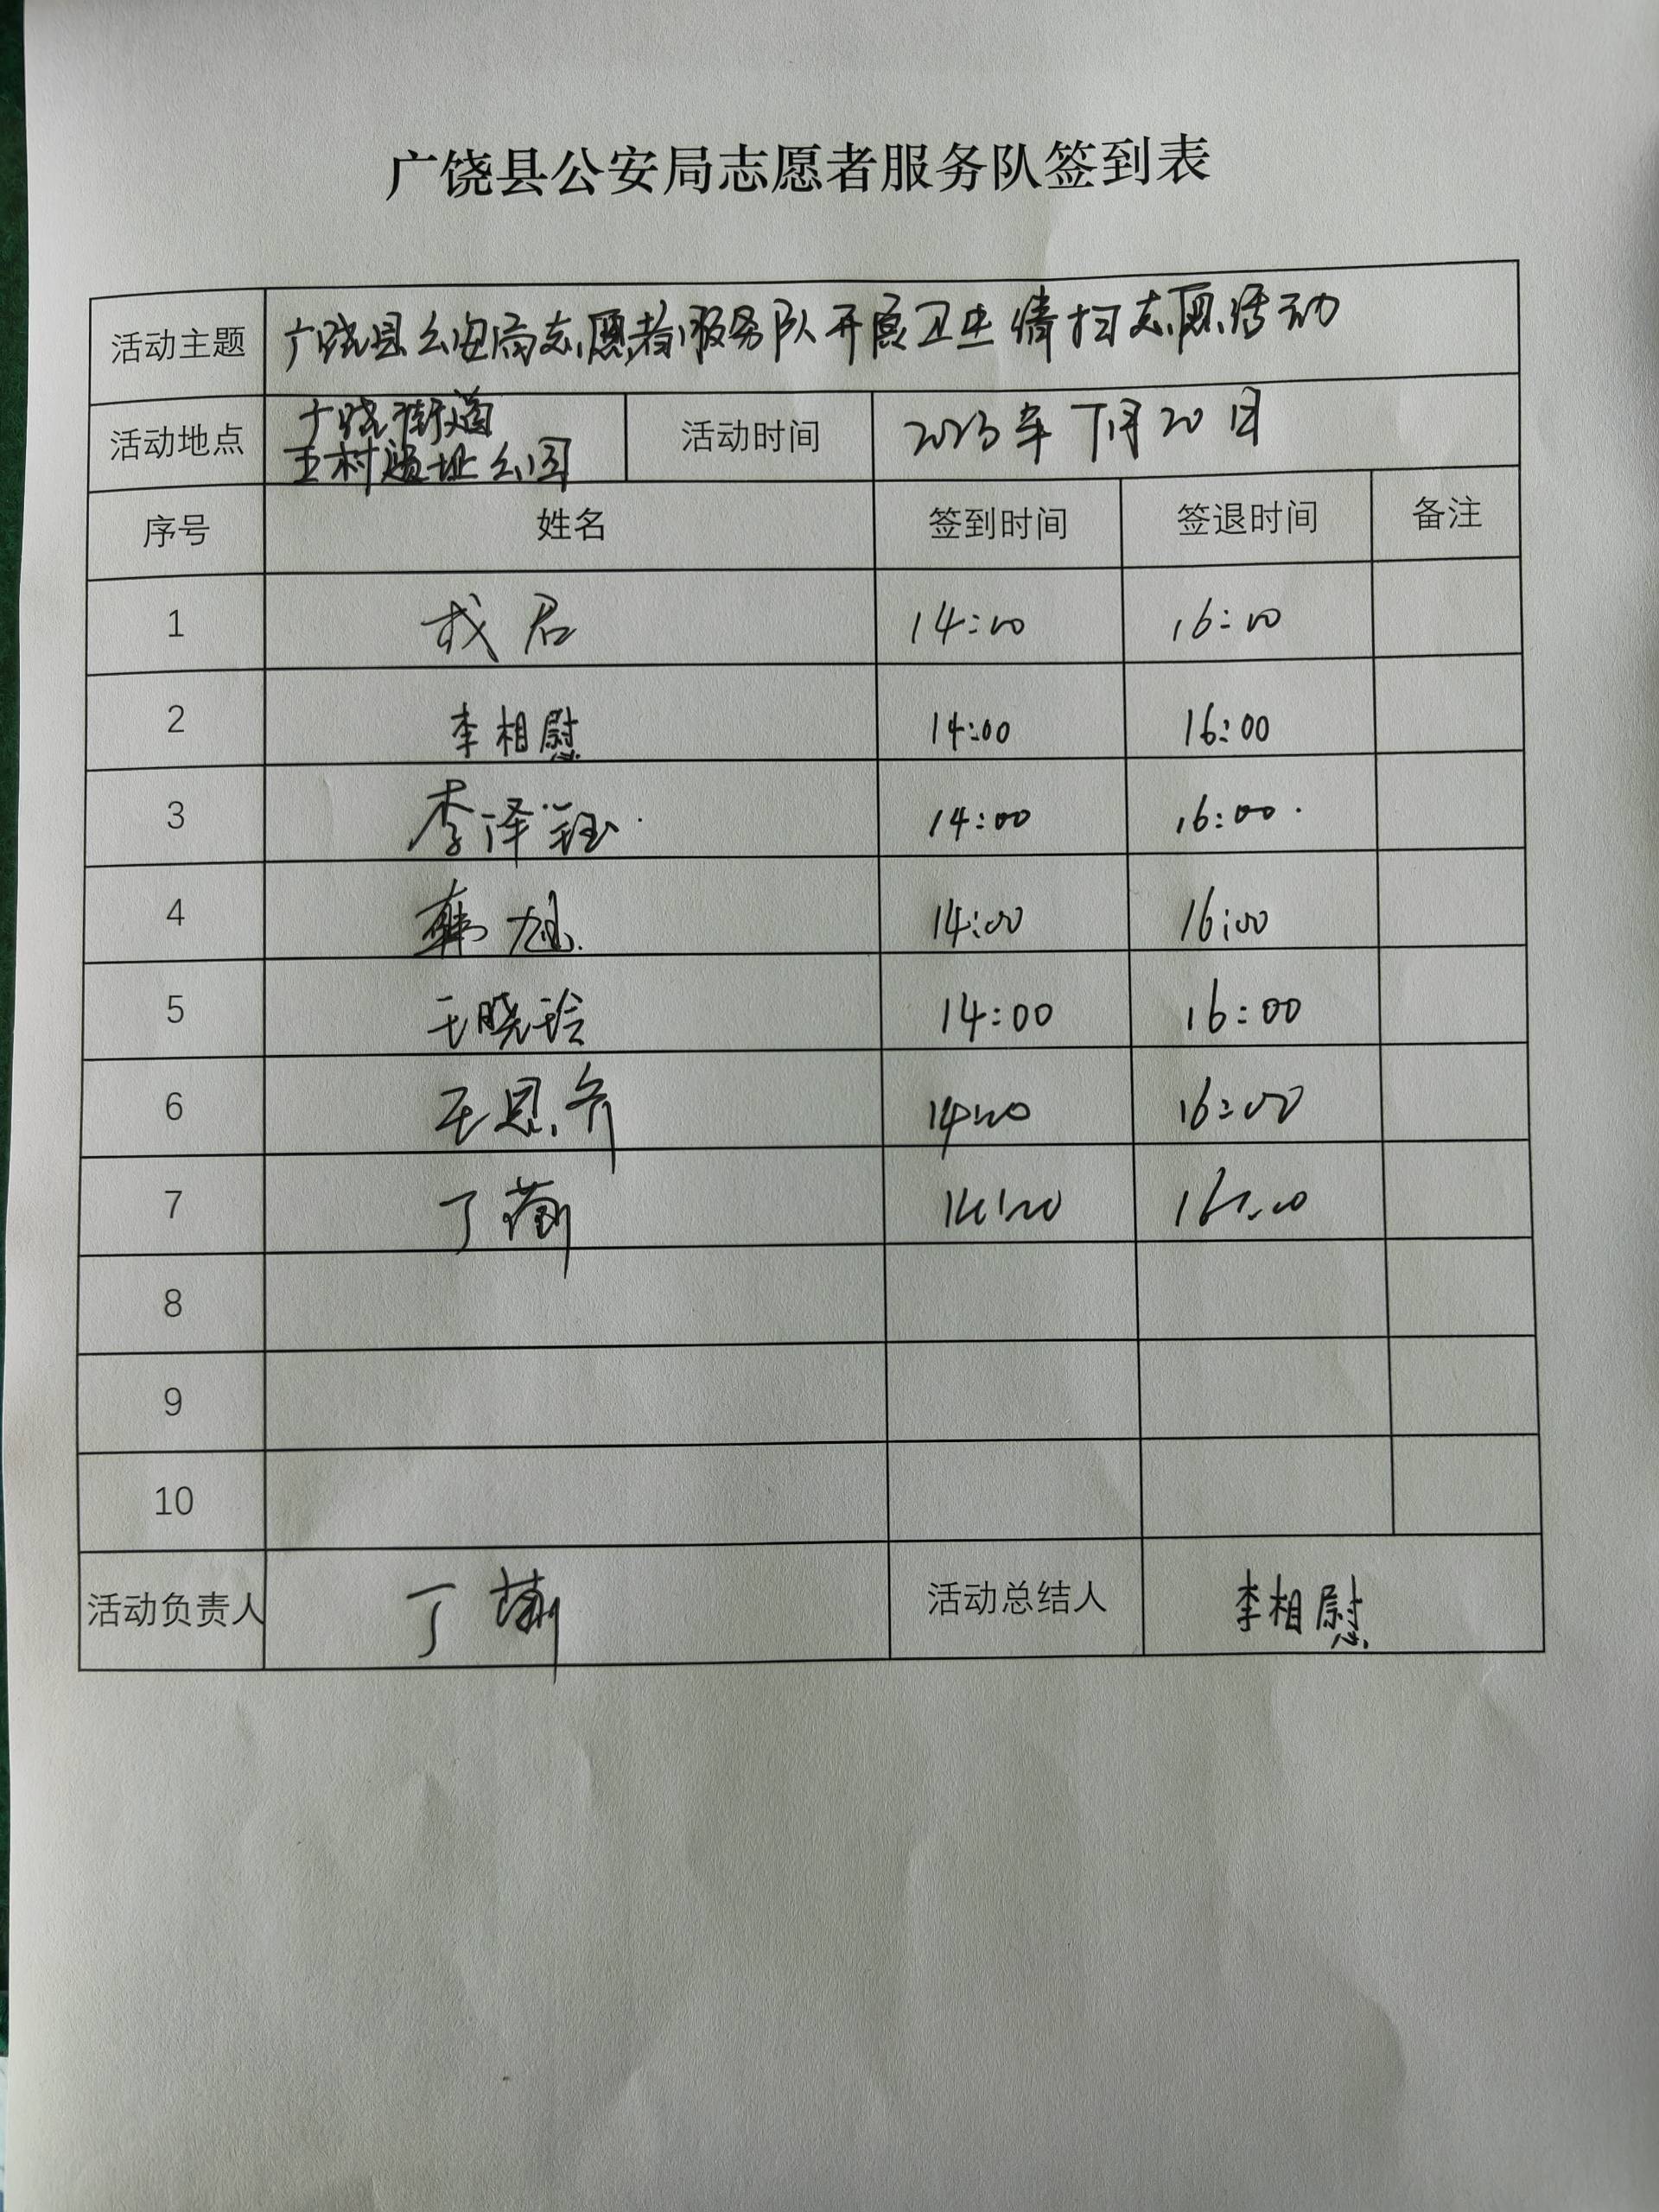 广饶县公安局志愿者服务队签到表
活动主题 广饶县公安局志愿者服务队开展卫生清扫志愿活动
活动地点 广饶街道 活动时间 2023年7月20日
王村遗址公园
序号 姓名 签到时间 签退时间 备注
1 君 14:00 16:00
2 李相慰 14:00 16:00
3 李泽钰 14:00 16:00
4 韩旭 14:00 16:00
5 王晓玲 14:00 16:00
6 王思齐 14:00 16:00
7 丁 14:00 16:00
8
9
10
活动负责人 丁 活动总结人 李相慰